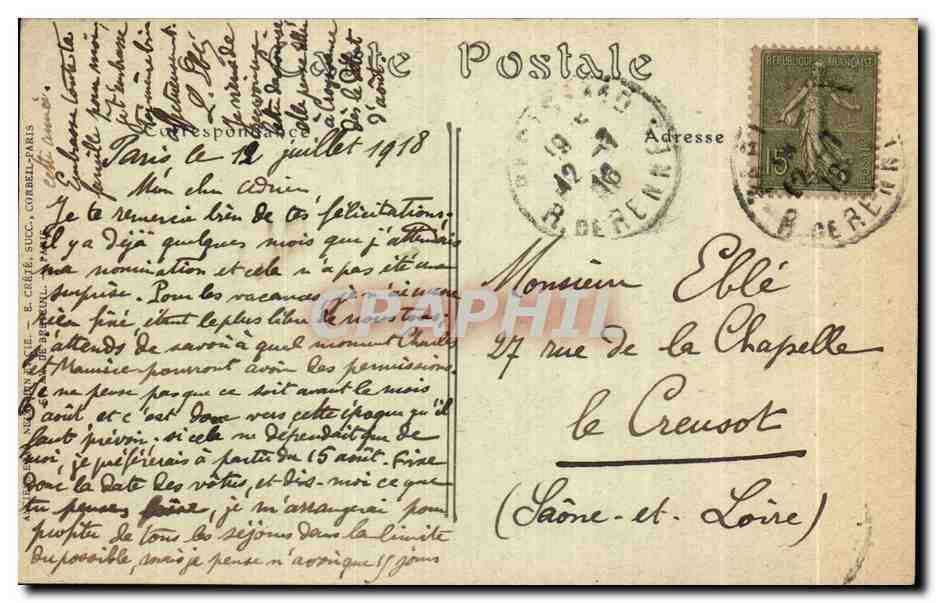 Carte Postale
Correspondance
Adresse
Paris le 12 juillet 1918
Mon cher Adrien
Je te remercie bien de tes félicitations.
Il y a déjà quelques mois que j'attendais
ma nomination et cela n'a pas été une
surprise. Pour les vacances je n'ai encore
rien fixé, étant le plus libre de nous tous,
j'attends de savoir à quel moment Charles
et Maurice pourront avoir les permissions.
Je ne pense pas que ce soit avant le mois
d'août et c'est donc vers cette époque qu'il
faut prévoir. si cela ne dépendait que de
moi, je préférerais à partir du 15 août. Fixe
donc la date des vôtres, et dis-moi ce que
tu penses faire, je m'arrangerai pour
profiter de tous les séjours dans la limite
du possible, mais je pense n'avoir que 15 jours
cette année.
Embrasse toute la
famille pour moi,
je t'embrasse
bien
affectueusement
L. Eblé
à
dès le début
d'août.
Monsieur Eblé
27 rue de la Chapelle
le Creusot
(Saône-et-Loire)
REPUBLIQUE FRANÇAISE
15
R. DE RENNES
R. DE RENNES
E. CRÉTÉ, SUCC., CORBEIL-PARIS
CPAPHIL